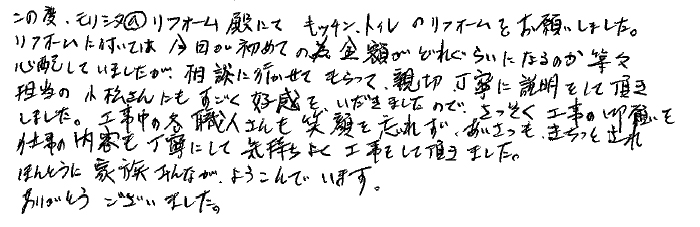 この度、モリシタ㋱リフォーム殿にて キッチン、トイレ のリフォームを お願いしました。
リフォームに付いては 今回が初めての為金額がどれぐらいになるのか等々
心配していましたが、相談に行かせて もらって、親切 丁寧に説明をして頂き
担当の 小松さんにも すごく 好感を、いだきましたので、さっそく 工事の 御願いを
しました。工事中の各職人さんも 笑顔を 忘れず、あいさつも、きちっと され
仕事の 内容も 丁寧にして 気持ちよく 工事をして頂きました。
ほんとうに 家族みんなが、よろこんでいます。
ありがとう ございました。